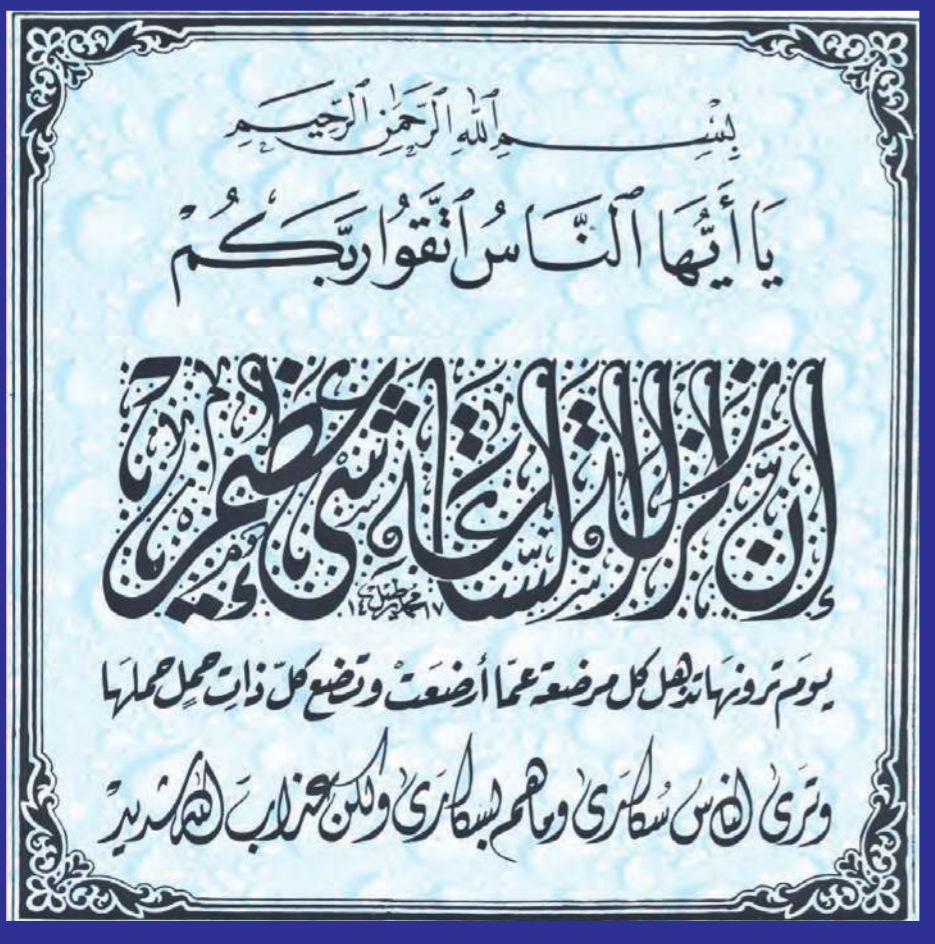 بِسْمِ ٱللَّهِ ٱلرَّحْمَٰنِ ٱلرَّحِيمِ
يَا أَيُّهَا ٱلنَّاسُ ٱتَّقُوا رَبَّكُمْ
إن زلزلة الساعة شيء عظيم
يوم ترونها تذهل كل مرضعة عمّا أرضعت وتضع كلّ ذات حملٍ حملها
وترى الناس سُكارى وما هم بسكارى ولكن عذاب الله شديد